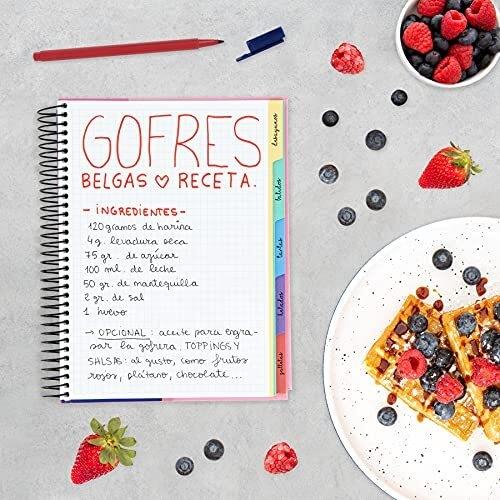 GOFRES
BELGAS ♡ RECETA.
- INGREDIENTES -
120 gramos de harina
4 g. levadura seca
75 gr. de azúcar
100 ml. de leche
50 gr. de mantequilla
2 gr. de sal
1 huevo
→ OPCIONAL: aceite para engra-
sar la gofrera. TOPPINGS Y
SALSAS: al gusto, como frutos
rojos, plátano, chocolate...
batidos
tartas
helados
galletas